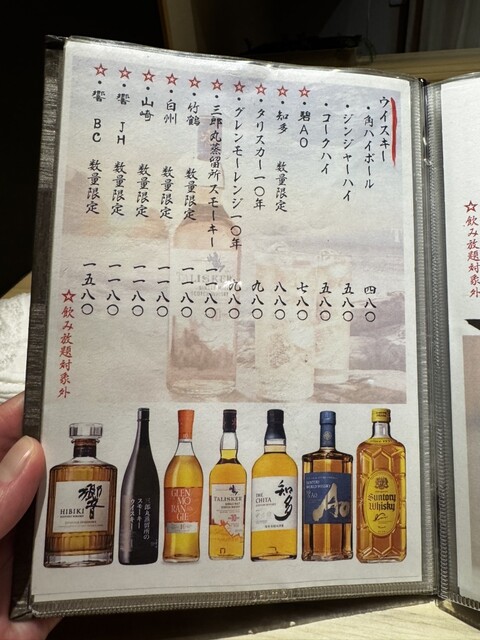 ウイスキー
・角ハイボール 四八〇
・ジンジャーハイ 五八〇
・コークハイ 五八〇
☆・碧AO 七八〇
☆・知多 数量限定 八八〇
・タリスカー 一〇年 九八〇
☆・グレンモーレンジ 一〇年 九八〇
☆・三郎丸蒸留所スモーキー 一一八〇
☆・竹鶴 数量限定 一一八〇
☆・白州 数量限定 一一八〇
☆・山崎 数量限定 一一八〇
☆・響 JH 数量限定 一一八〇
☆・響 BC 数量限定 一五八〇
☆飲み放題対象外
☆飲み放題対象外
TALISKER
響
HIBIKI
三郎丸蒸留所の
スモーキー
ウイスキー
GLEN
MO
RAN
GIE
TALISKER
10
知多
THE
CHITA
AO
Suntory
Whisky